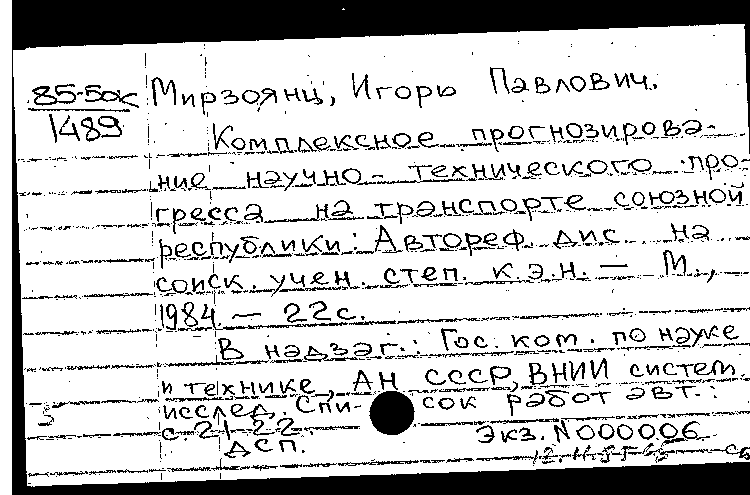 85-5ок
1489
Мирзоянц, Игорь Павлович.
Комплексное прогнозирова-
ние научно-технического про-
гресса на транспорте союзной
республики: Автореф. дис. на
соиск. учен. степ. к.э.н. — М.,
1984. — 22с.
В надзаг.: Гос. ком. по науке
и технике, АН СССР, ВНИИ систем.
исслед. Спи- сок работ авт.:
с 21-22.
ДСП.
Экз. N000006